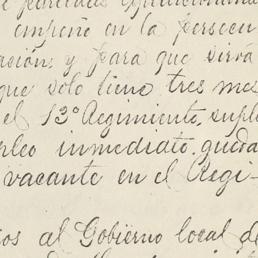 empeño en la persecu
ación; y para que sirva
que solo tiene tres mes
el 13º Regimiento, suple
pleo inmediato, queda
vacante en el Regi-
os al Gobierno local de